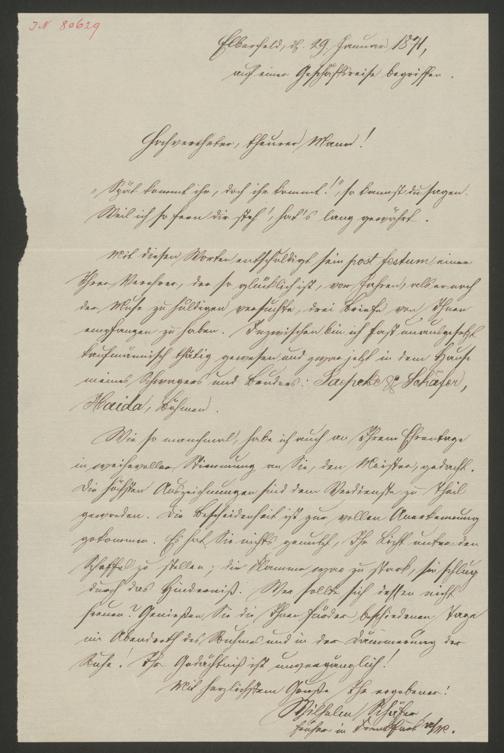 J.N 80629
Elberfeld, d. 29 Januar 1871,
auf einer Geschäftsreise begriffen.
Hochverehrter, theurer Mann!
„Spät kommt ihr, doch ihr kommt!", so kannst du sagen.
Weil ich so fern dir steh', hat's lang gewährt.
Mit diesen Worten entschuldigt sein post festum einer
Ihrer Verehrer, der so glücklich ist, vor Jahren, als er noch
der Muse zu huldigen versuchte, drei Briefe von Ihnen
empfangen zu haben. Inzwischen bin ich fast unausgesetzt
kaufmännisch thätig gewesen und zwar jetzt in dem Hause
meines Schwagers und Bruders: & Schäfer,
Haida, Böhmen.
Wie so manchmal, habe ich auch an Ihrem Ehrentage
in weihevoller Stimmung an Sie, den Meister, gedacht.
Die höchsten Auszeichnungen sind dem Verdienste zu Theil
geworden. Die Bescheidenheit ist zur vollen Anerkennung
gekommen. Es hat Sie nichts genutzt, Ihr Licht unter den
Scheffel zu stellen; die Flamme war zu stark, sie schlug
durch das Hinderniß. Wer sollte sich dessen nicht
freuen? Genießen Sie die Ihnen beschiedenen Tage
im Abendroth des Ruhmes und in der Dämmerung der
Ruhe! Ihr Gedächtniß ist unvergänglich!
Mit herzlichstem Gruße Ihr ergebener:
Wilhelm Schäfer
früher in Frankfurt a/M.